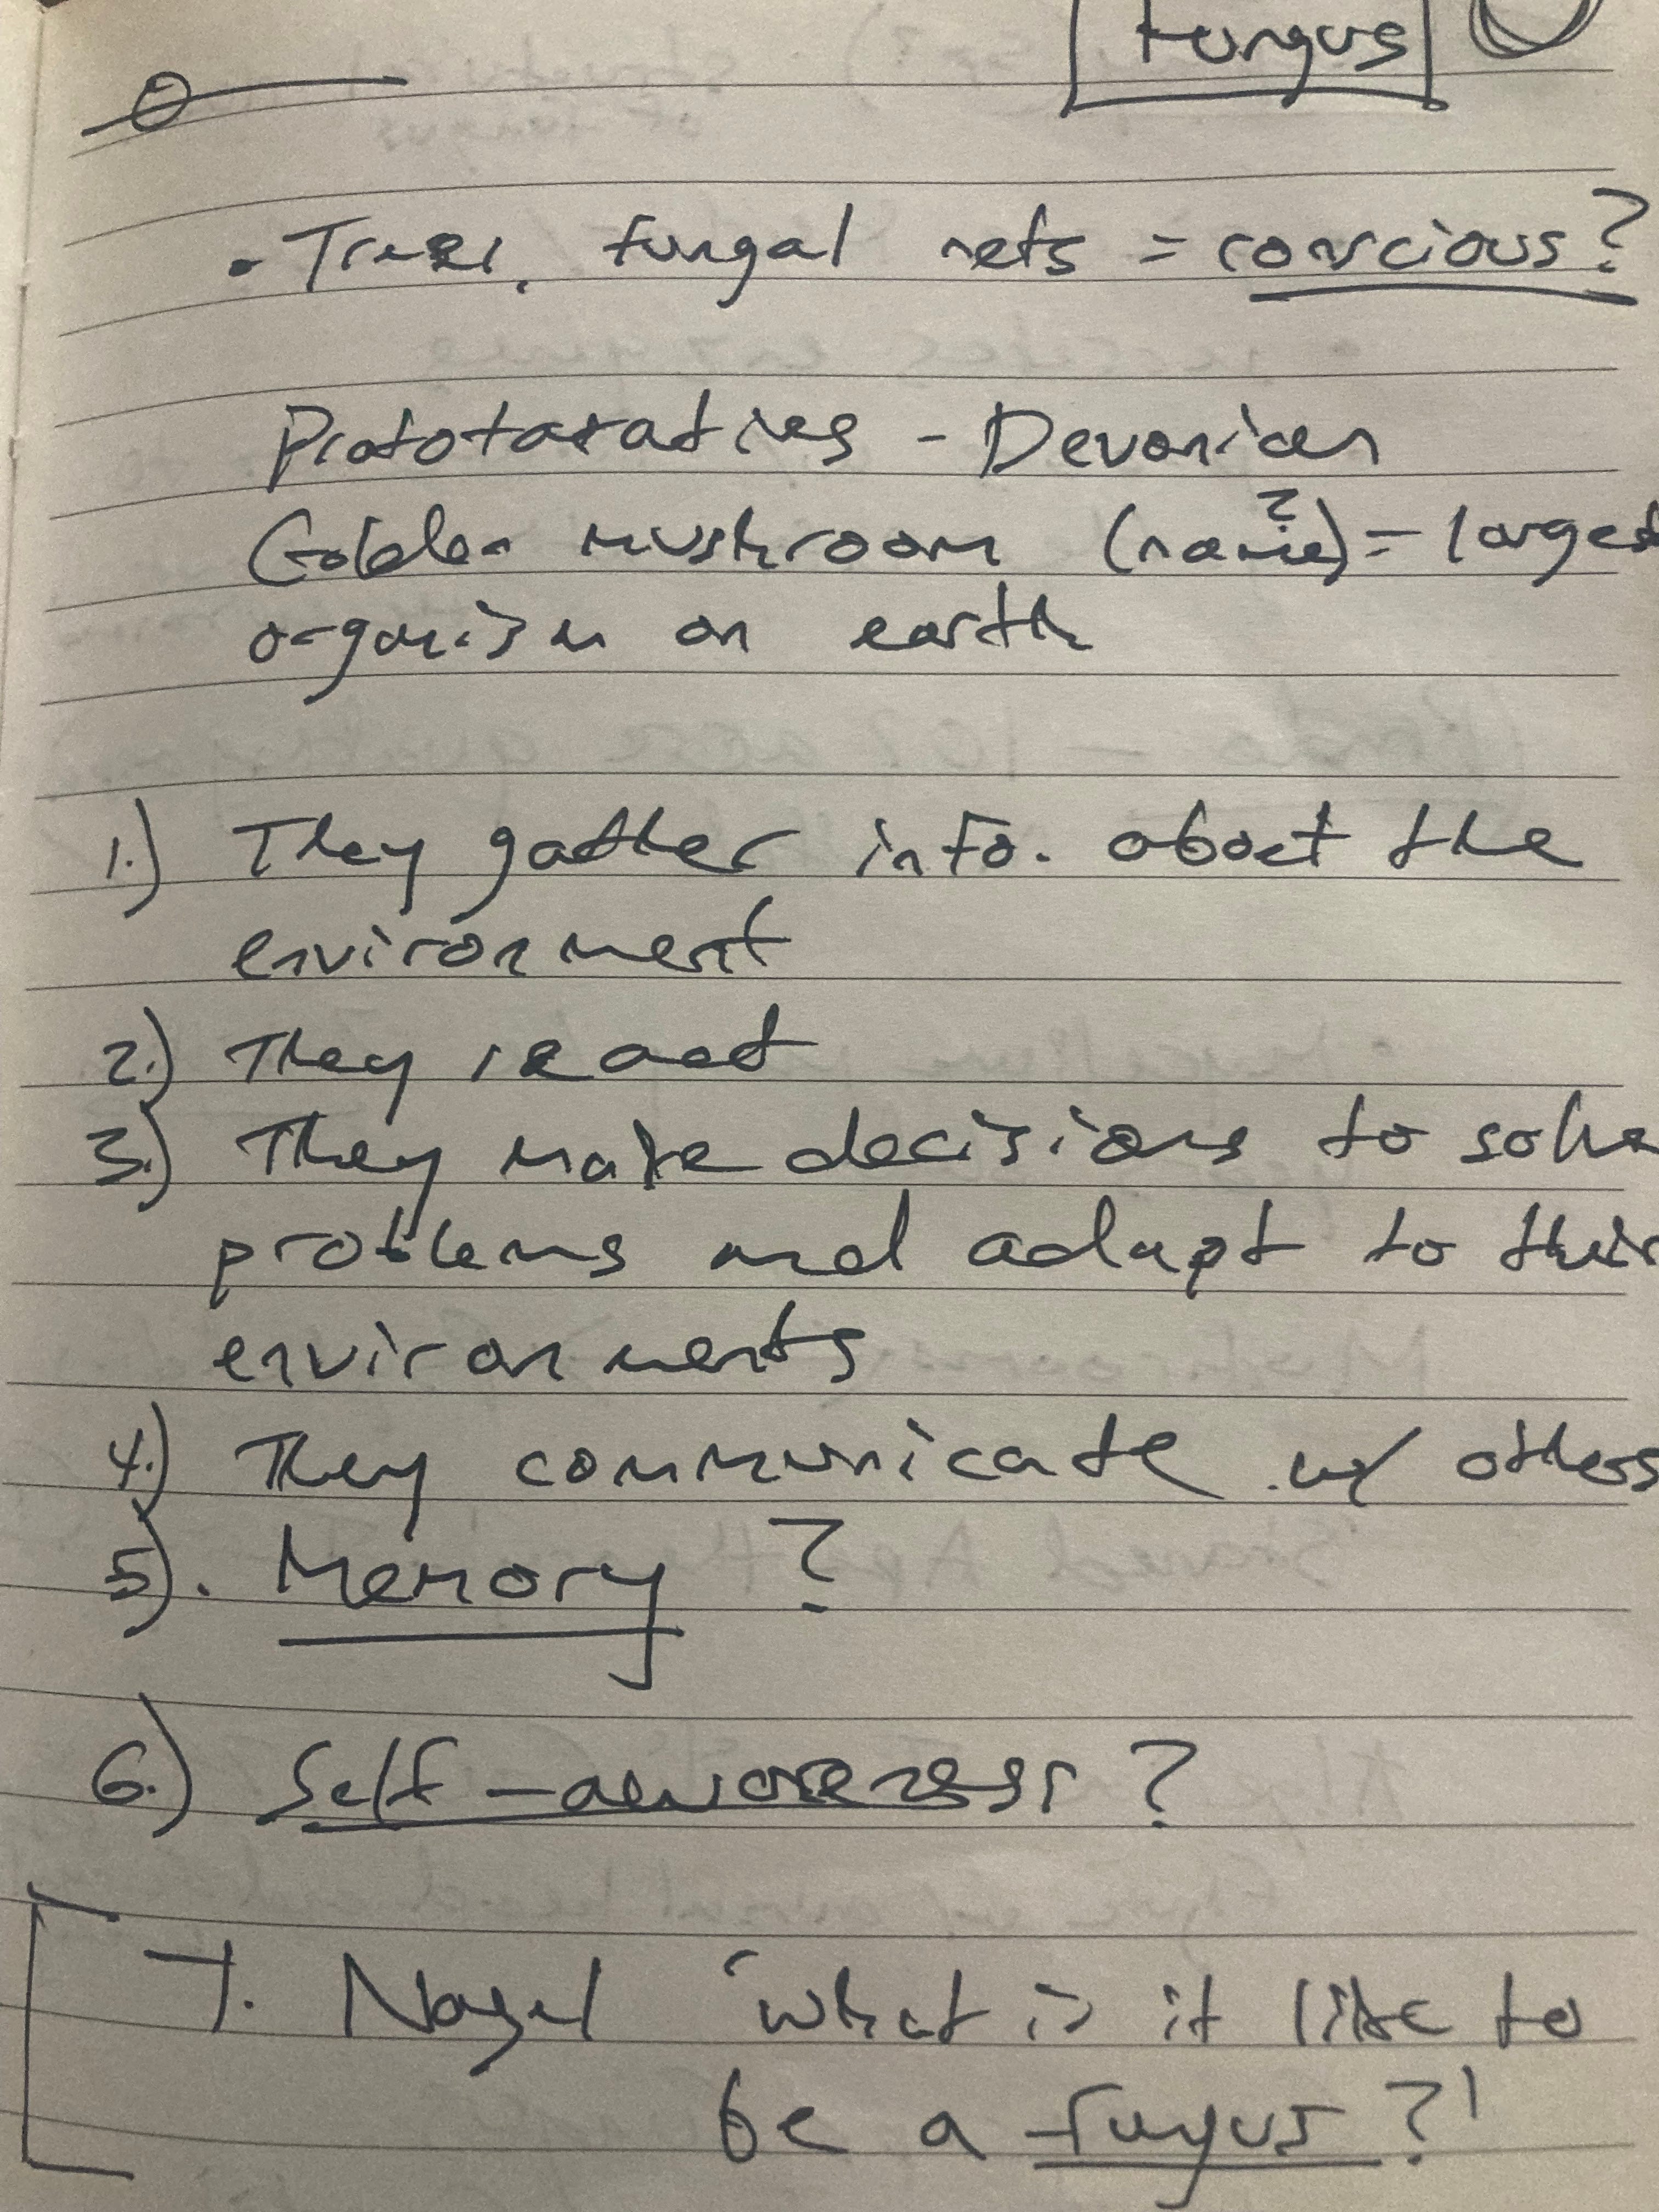 Fungus
• Trees, fungal nets = conscious?
Prototaxatites - Devonian
Golden mushroom (name?) = largest
organism on earth
1.) They gather info. about the
environment
2.) They react
3.) They make decisions to solve
problems and adapt to their
environments
4.) They communicate w/ others
5). Memory ?
6.) Self-awareness ?
T. Nagel 'What is it like to
be a fungus?'